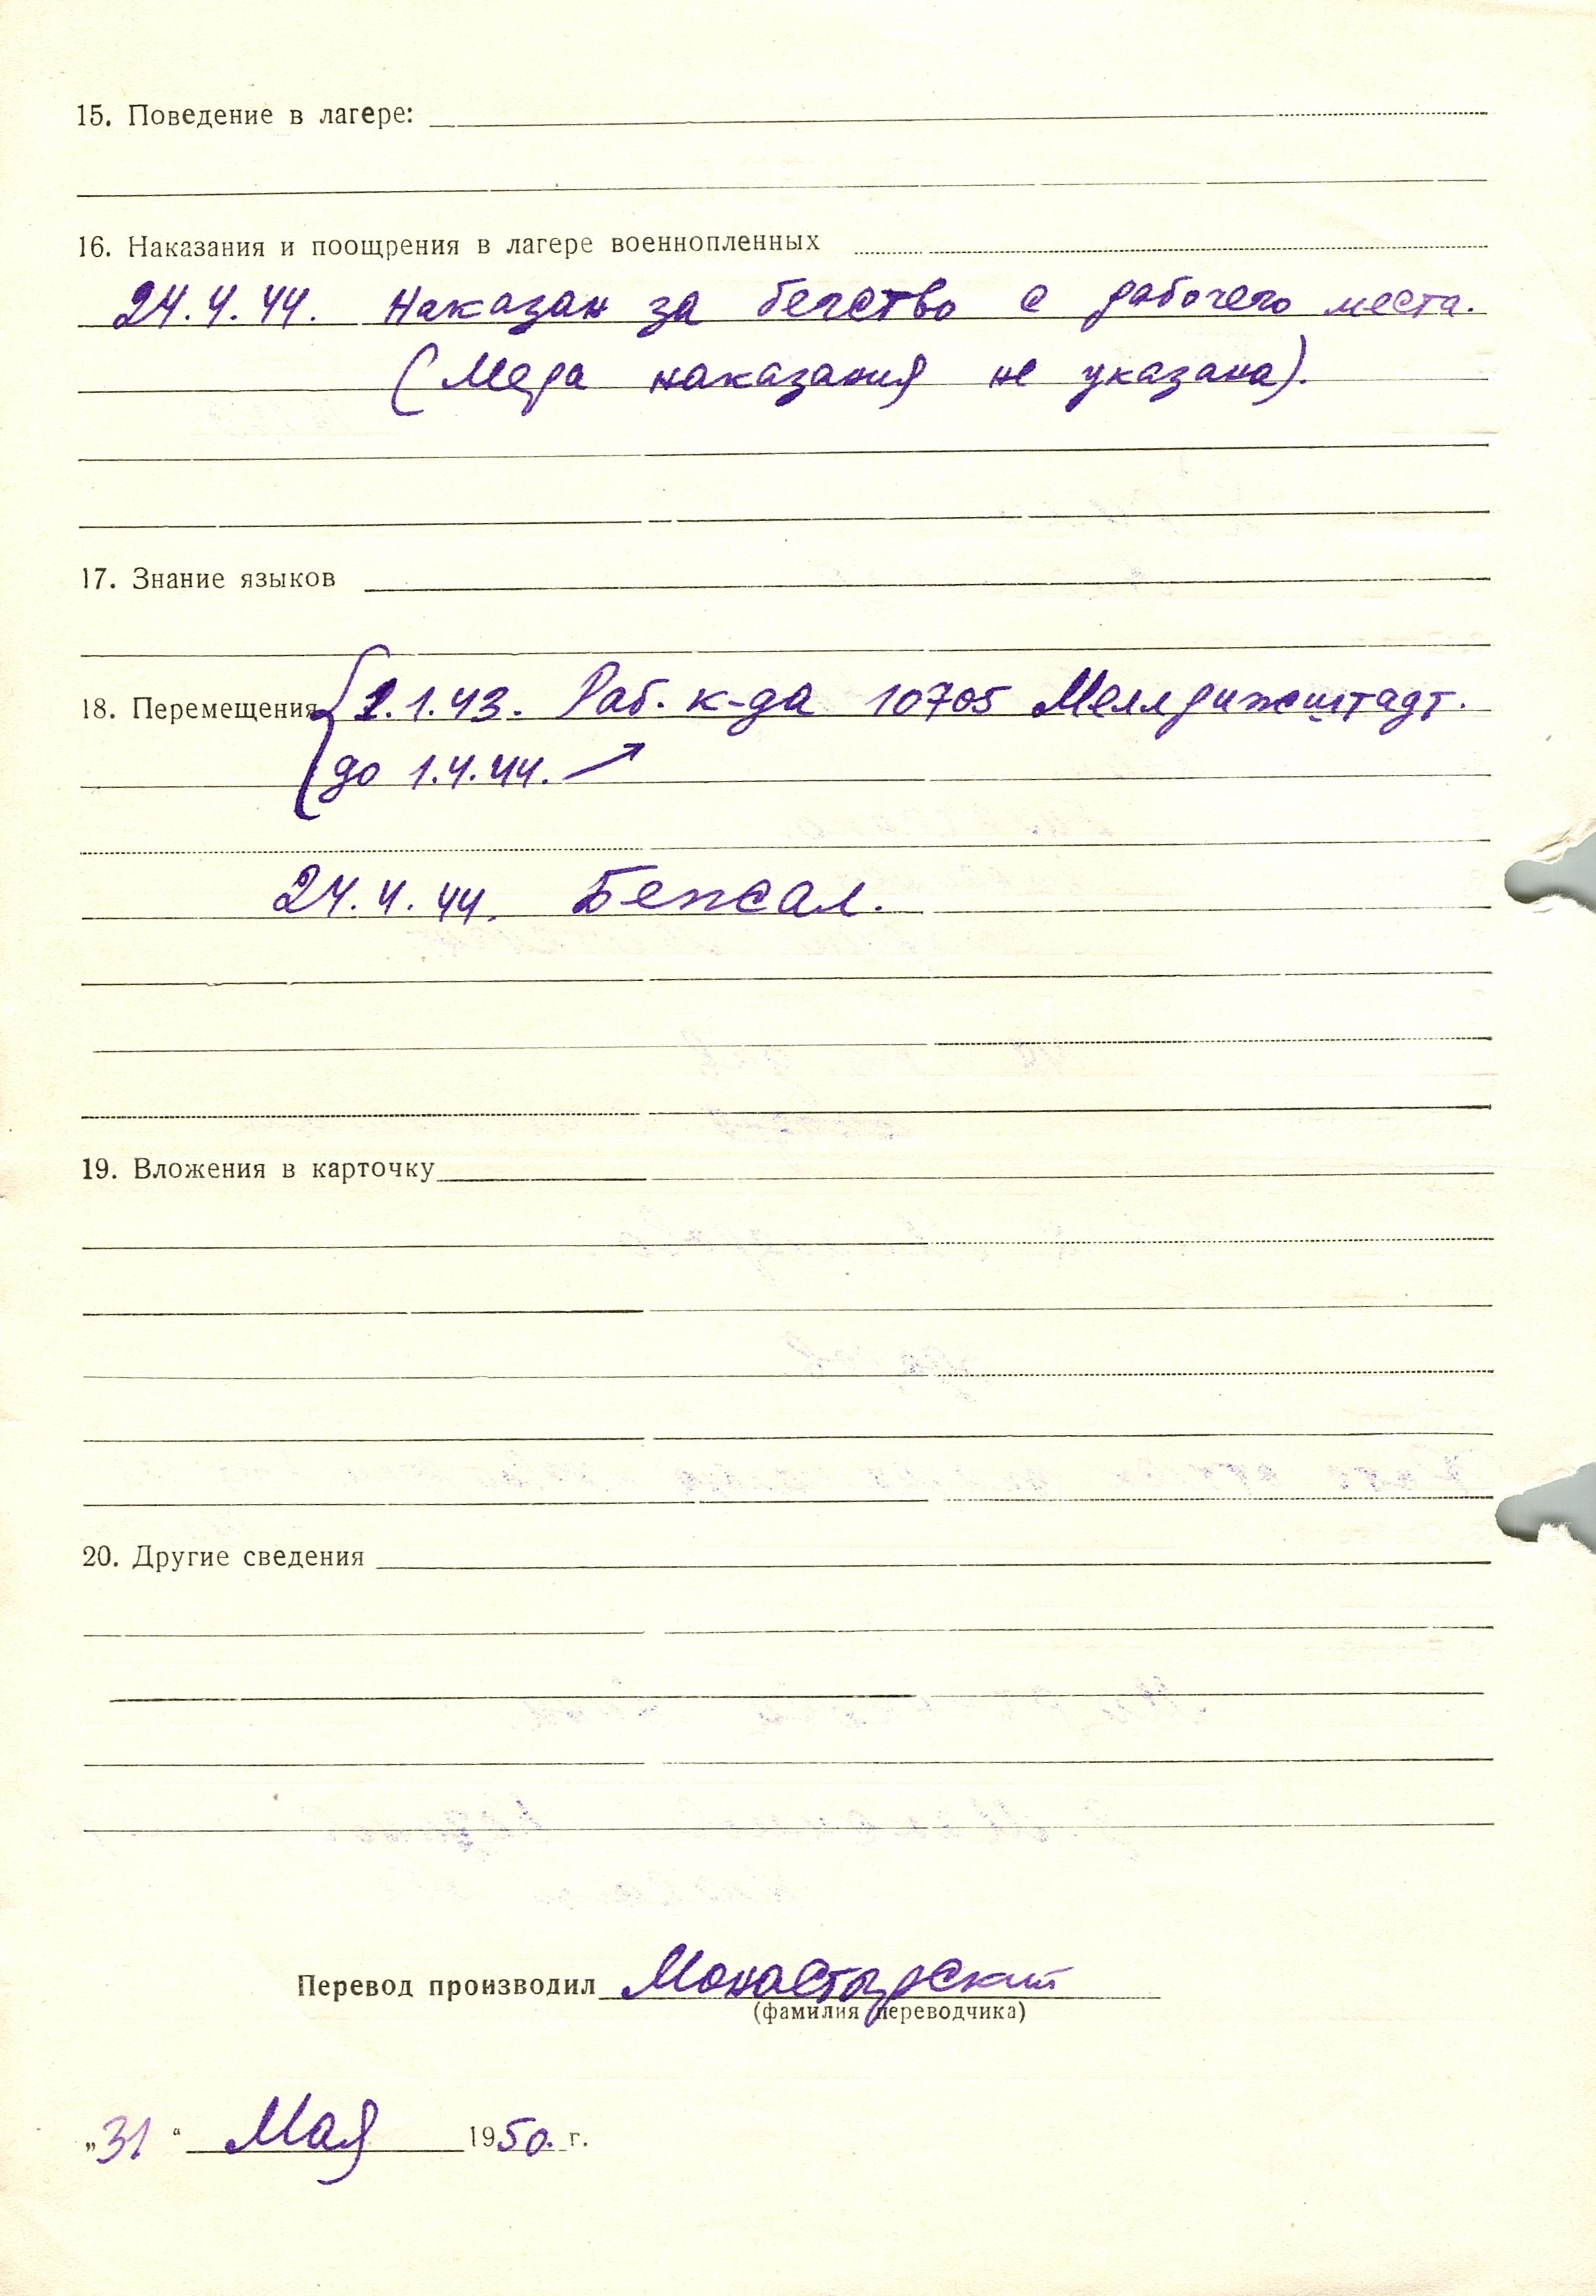 15. Поведение в лагере:
16. Наказания и поощрения в лагере военнопленных
24.4.44. Наказан за бегство с рабочего места.
(Мера наказания не указана).
17. Знание языков
18. Перемещения 1.1.43. Раб. к-да 10705
до 1.4.44.
24.4.44. Бежал.
19. Вложения в карточку
20. Другие сведения
Перевод производил Монастырский
(фамилия переводчика)
„31“ Мая 1950. г.